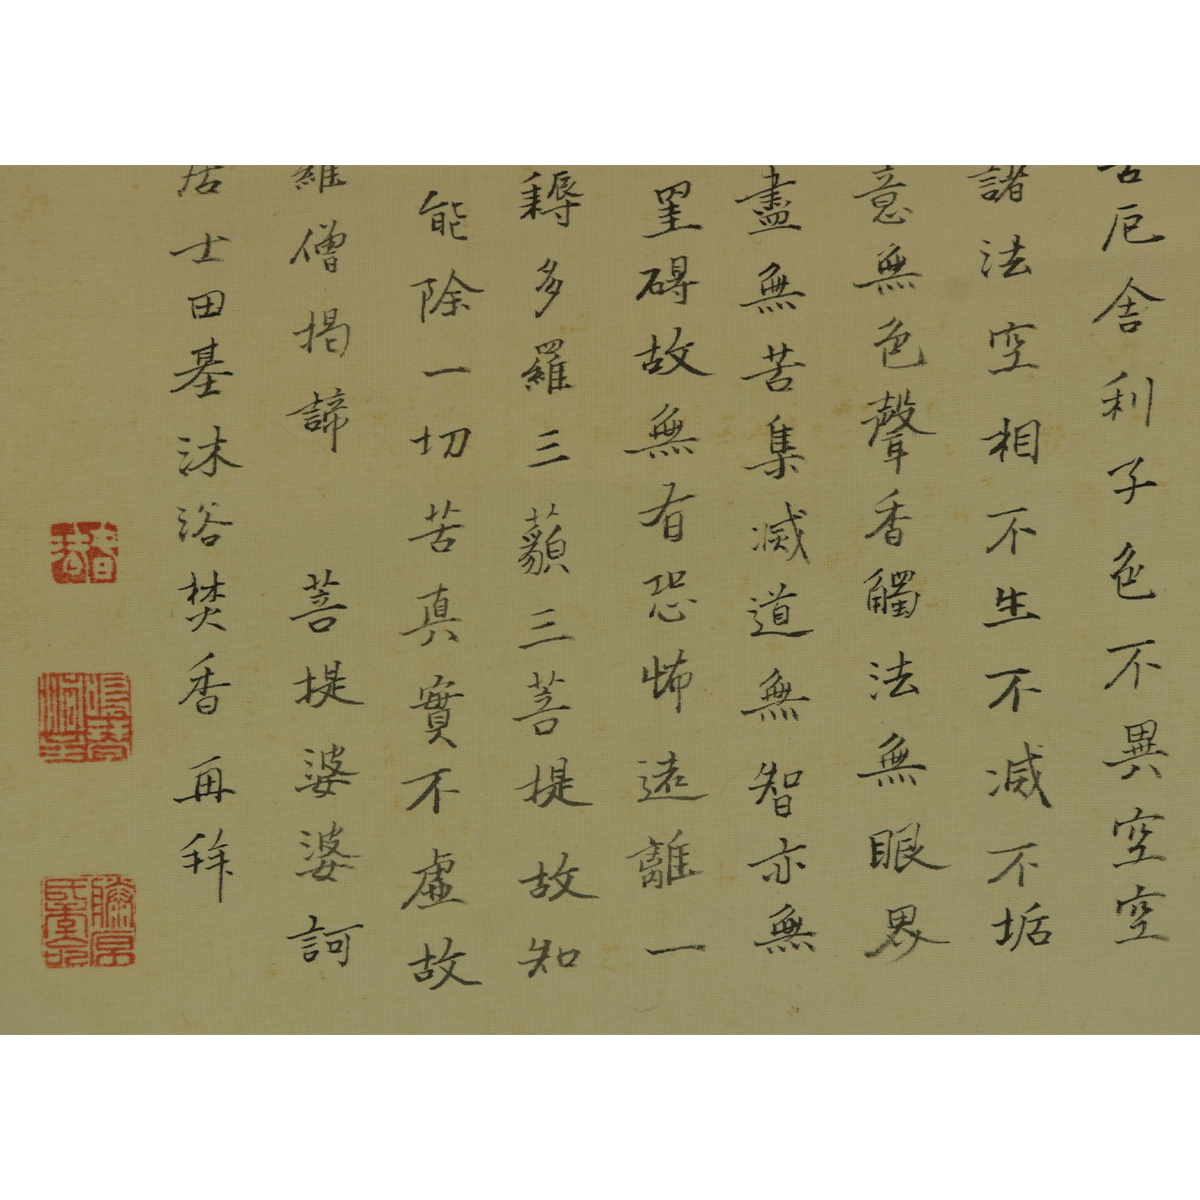 苦厄舍利子色不異空空
諸法空相不生不滅不垢
意無色聲香觸法無眼界
盡無苦集滅道無智亦無
罣碍故無有恐怖遠離一
耨多羅三藐三菩提故知
能除一切苦真實不虛故
羅僧揭諦 菩提婆婆訶
居士田基沐浴焚香再拜